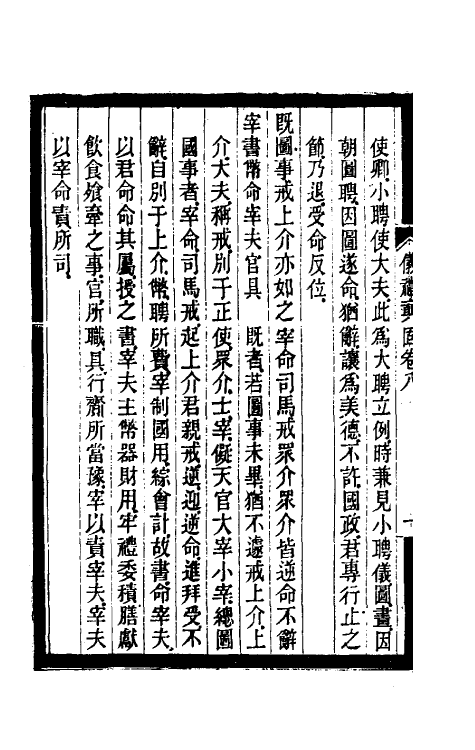 使卿、小聘使大夫、此爲大聘立例、時兼見小聘儀、圖畫、因
朝圖聘、因圖遂命、猶辭讓爲美德、不許、國政、君專行止之
節、乃退、受命反位、
既圖事戒上介亦如之宰命司馬戒眾介眾介皆逆命不辭
宰書幣命宰夫官具　既者、若圖事未畢、猶不遽戒上介、上
介、大夫、稱戒、別于正使、眾介、士、宰、儗天官大宰小宰、總圖
國事者、宰命司馬戒、起上介君親戒、逆、迎、逆命、進拜受、不
辭、自別于上介、幣、聘所費、宰制國用、綜會計、故書、命宰夫、
以君命命其屬、授之書、宰夫主幣器財用、牢禮委積膳獻
飲食飧牽之事、官、所職、具、行齎所當豫、宰以責宰夫、宰夫
以宰命責所司、
儀禮 卷八